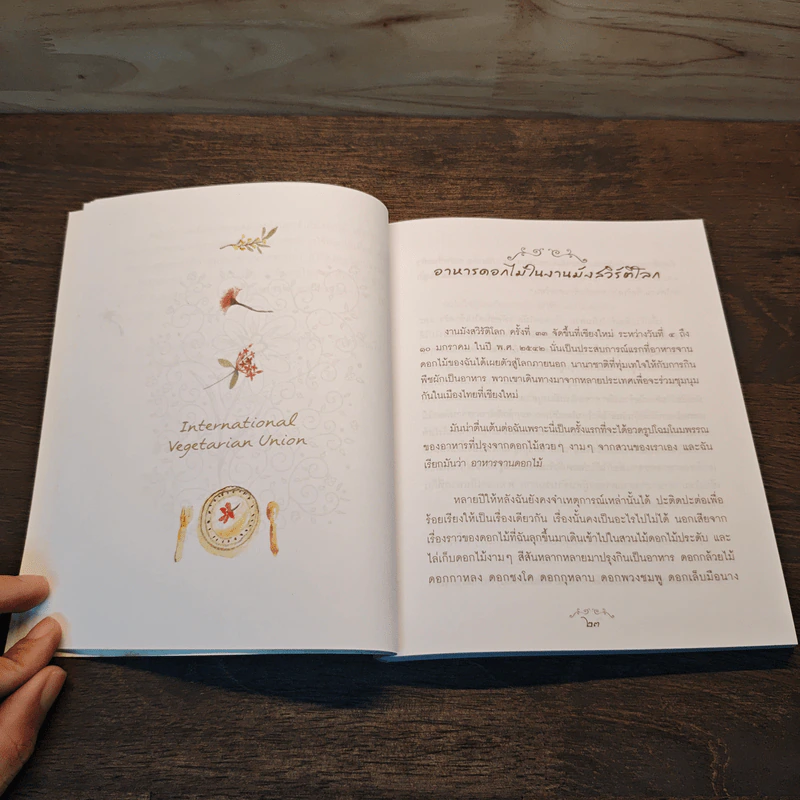 International
Vegetarian Union
อาหารดอกไม้ในงานมังสวิรัติโลก
งานมังสวิรัติโลก ครั้งที่ ๓๓ จัดขึ้นที่เชียงใหม่ ระหว่างวันที่ ๔ ถึง
๑๐ มกราคม ในปี พ.ศ. ๒๕๔๒ นั่นเป็นประสบการณ์แรกที่อาหารจาน
ดอกไม้ของฉันได้เผยตัวสู่โลกภายนอก นานาชาติที่ทุ่มเทใจให้กับการกิน
พืชผักเป็นอาหาร พวกเขาเดินทางมาจากหลายประเทศเพื่อจะร่วมชุมนุม
กันในเมืองไทยที่เชียงใหม่
มันน่าตื่นเต้นต่อฉันเพราะนี่เป็นครั้งแรกที่จะได้อวดรูปโฉมในมพรรณ
ของอาหารที่ปรุงจากดอกไม้สวยๆ งามๆ จากสวนของเราเอง และฉัน
เรียกมันว่า อาหารจานดอกไม้
หลายปีให้หลังฉันยังคงจำเหตุการณ์เหล่านั้นได้ ปะติดปะต่อเพื่อ
ร้อยเรียงให้เป็นเรื่องเดียวกัน เรื่องนั้นคงเป็นอะไรไปไม่ได้ นอกเสียจาก
เรื่องราวของดอกไม้ที่ฉันลุกขึ้นมาเดินเข้าไปในสวนไม้ดอกไม้ประดับ และ
ไล่เก็บดอกไม้งามๆ สีสันหลากหลายมาปรุงกินเป็นอาหาร ดอกกล้วยไม้
ดอกกาหลง ดอกชงโค ดอกกุหลาบ ดอกพวงชมพู ดอกเล็บมือนาง
๒๓